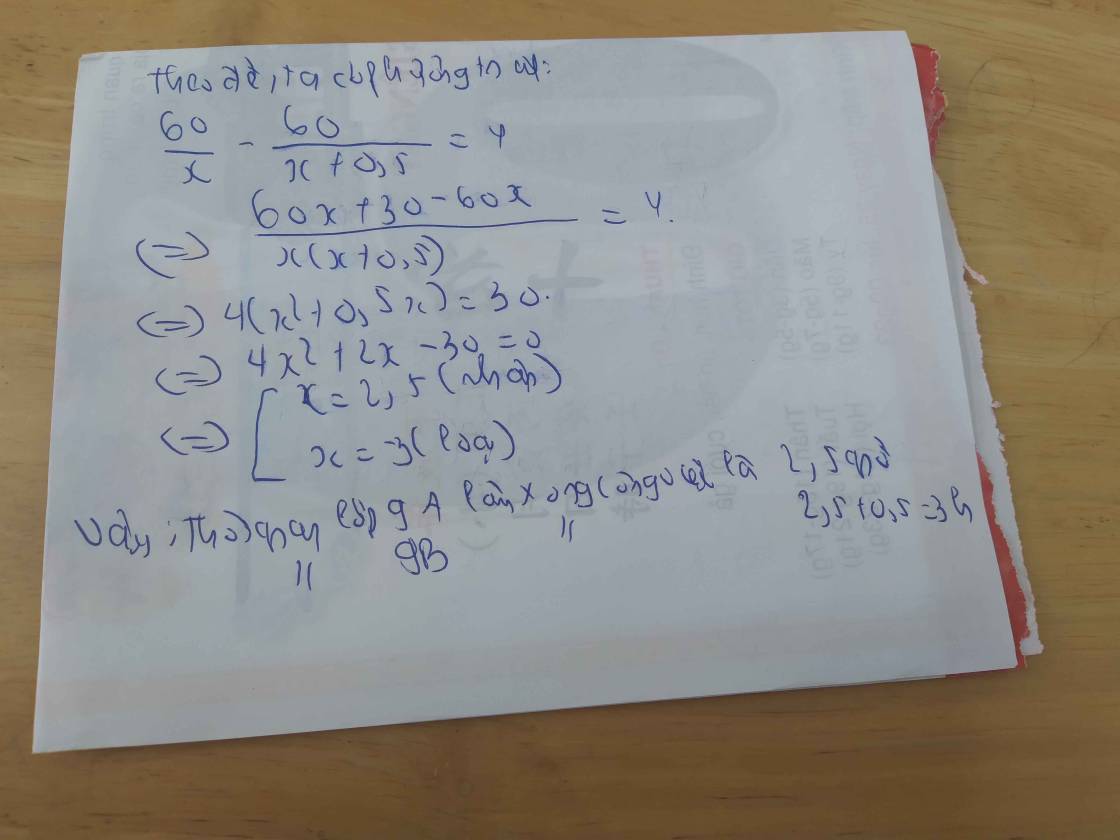 theo đề, ta có phương trình:
60/x - 60/(x+0,5) = 4
(=) (60x+30-60x)/(x(x+0,5)) = 4.
(=) 4(x²+0,5x) = 30.
(=) 4x²+2x-30=0
(=) [ x=2,5 (nhận)
x=-3 (loại)
Vậy: Thời gian lớp 9A làm xong công việc là 2,5 giờ
" 9B " 2,5+0,5=3h